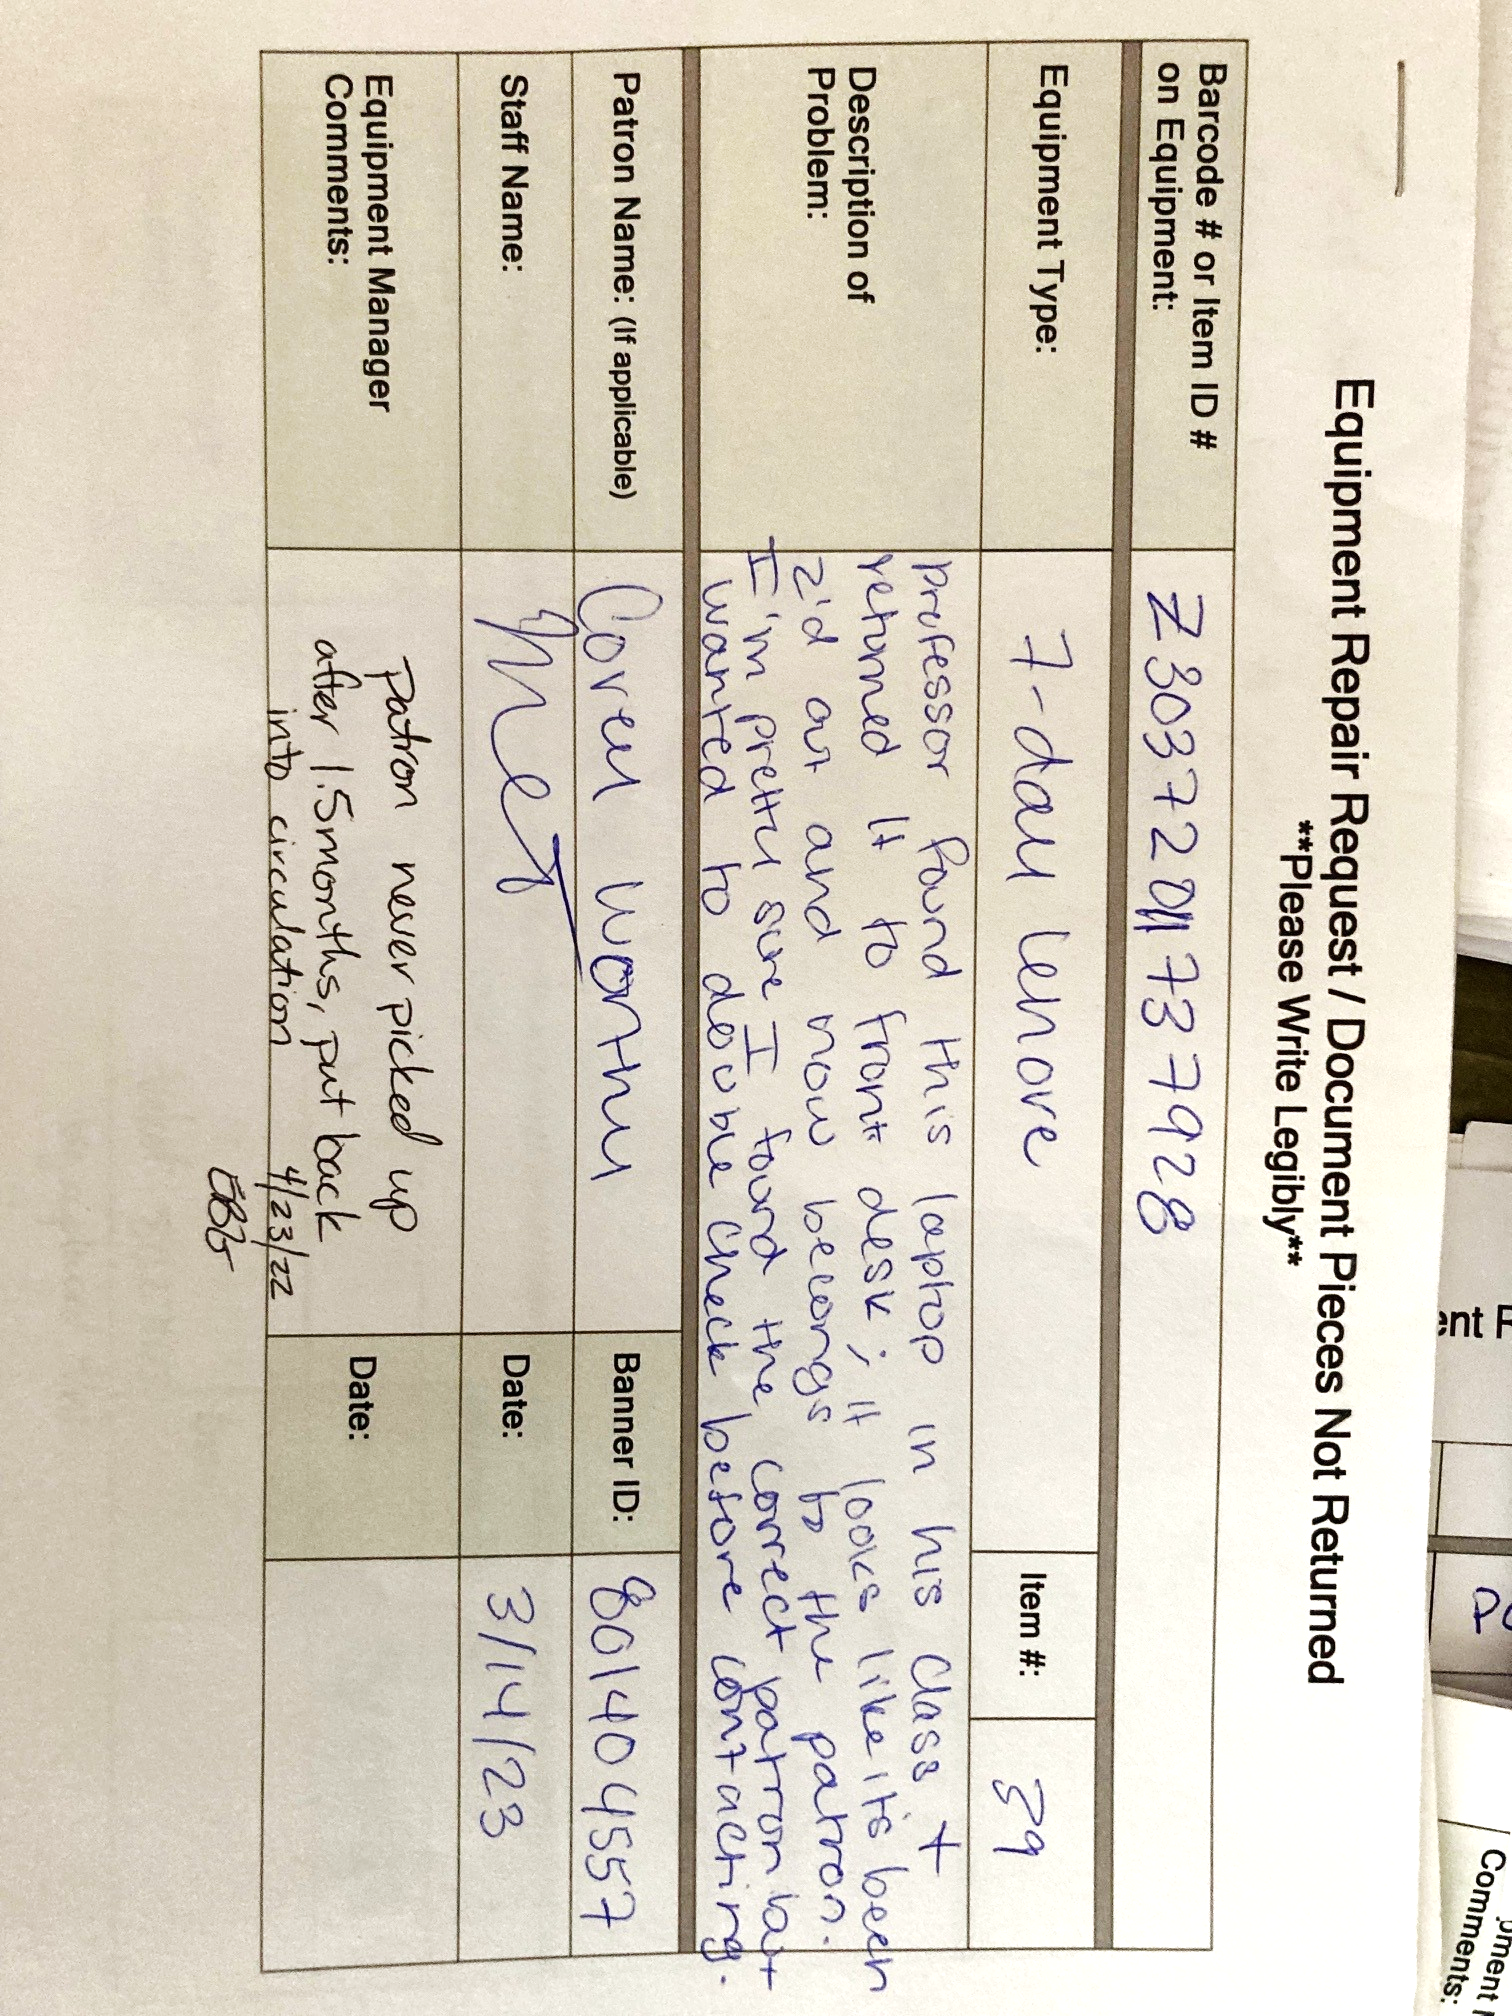 Equipment Repair Request / Document Pieces Not Returned
**Please Write Legibly**
Barcode # or Item ID #
on Equipment:
Z30372011737928
Equipment Type:
7-day lenovo
Item #:
39
Description of
Problem:
professor found this laptop in his class +
returned it to front desk; it looks like it's been
z'd out and now belongs to the patron.
I'm pretty sure I found the correct patron but
wanted to double check before contacting.
Patron Name: (If applicable)
Corey Worthy
Banner ID:
801404557
Staff Name:
Date:
3/14/23
Equipment Manager
Comments:
patron never picked up
after 1.5 months, put back
into circulation
4/23/22
Date:
ent
Comments: